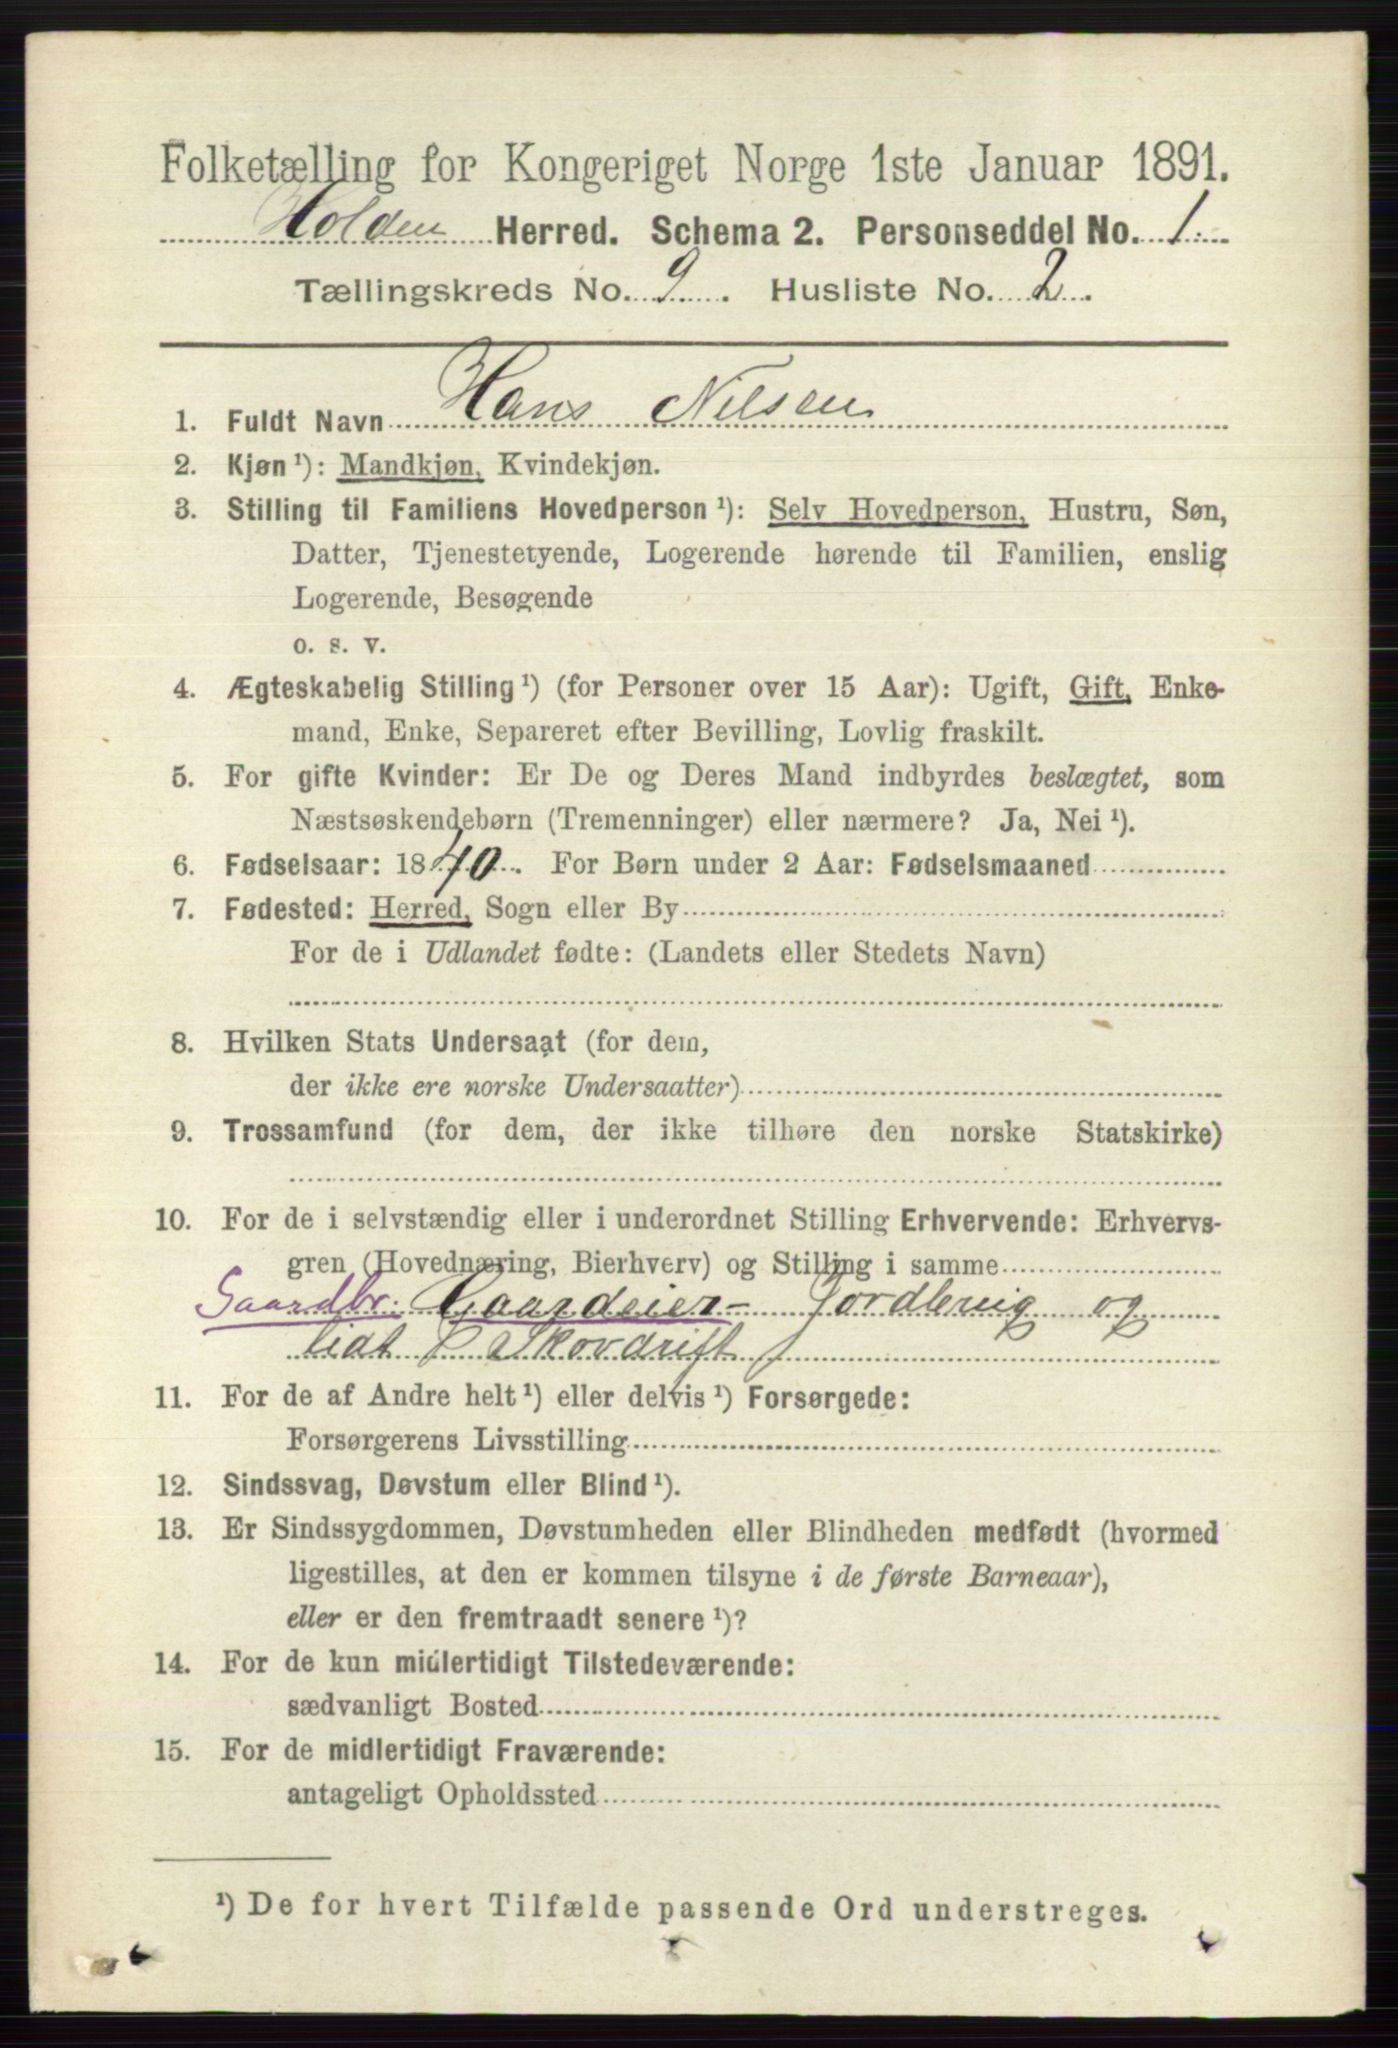 Folketælling for Kongeriget Norge 1ste Januar 1891.
Holden Herred. Schema 2. Personseddel No. 1
Tællingskreds No. 9. Husliste No. 2.
1. Fuldt Navn Hans Nilsen
2. Kjøn ¹): Mandkjøn, Kvindekjøn.
3. Stilling til Familiens Hovedperson ¹): Selv Hovedperson, Hustru, Søn,
Datter, Tjenestetyende, Logerende hørende til Familien, enslig
Logerende, Besøgende
o. s. v.
4. Ægteskabelig Stilling ¹) (for Personer over 15 Aar): Ugift, Gift, Enke-
mand, Enke, Separeret efter Bevilling, Lovlig fraskilt.
5. For gifte Kvinder: Er De og Deres Mand indbyrdes beslægtet, som
Næstsøskendebørn (Tremenninger) eller nærmere? Ja, Nei ¹).
6. Fødselsaar: 1840. For Børn under 2 Aar: Fødselsmaaned
7. Fødested: Herred, Sogn eller By
For de i Udlandet fødte: (Landets eller Stedets Navn)
8. Hvilken Stats Undersaat (for dem,
der ikke ere norske Undersaatter)
9. Trossamfund (for dem, der ikke tilhøre den norske Statskirke)
10. For de i selvstændig eller i underordnet Stilling Erhvervende: Erhvervs-
gren (Hovednæring, Bierhverv) og Stilling i samme
Gaardbr. Gaardeier - Jordbrug og
lidt Skovdrift
11. For de af Andre helt ¹) eller delvis ¹) Forsørgede:
Forsørgerens Livsstilling
12. Sindssvag, Døvstum eller Blind ¹).
13. Er Sindssygdommen, Døvstumheden eller Blindheden medfødt (hvormed
ligestilles, at den er kommen tilsyne i de første Barneaar),
eller er den fremtraadt senere ¹)?
14. For de kun midlertidigt Tilstedeværende:
sædvanligt Bosted
15. For de midlertidigt Fraværende:
antageligt Opholdssted
¹) De for hvert Tilfælde passende Ord understreges.